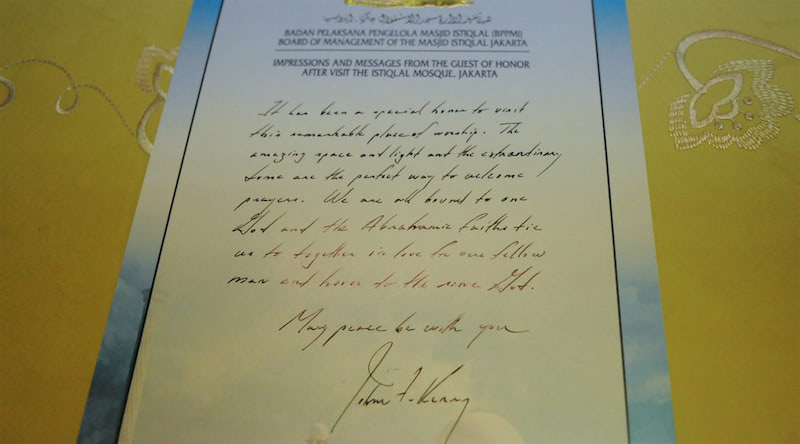 BADAN PELAKSANA PENGELOLA MASJID ISTIQLAL (BPPMI)
BOARD OF MANAGEMENT OF THE MASJID ISTIQLAL JAKARTA
IMPRESSIONS AND MESSAGES FROM THE GUEST OF HONOR
AFTER VISIT THE ISTIQLAL MOSQUE, JAKARTA
It has been a special honor to visit
this remarkable place of worship. The
amazing space and light and the extraordinary
dome are the perfect way to welcome
prayers. We are all bound to one
God and the Abrahamic faiths tie
us to together in love for our fellow
man and honor to the same God.
May peace be with you
John F. Kerry